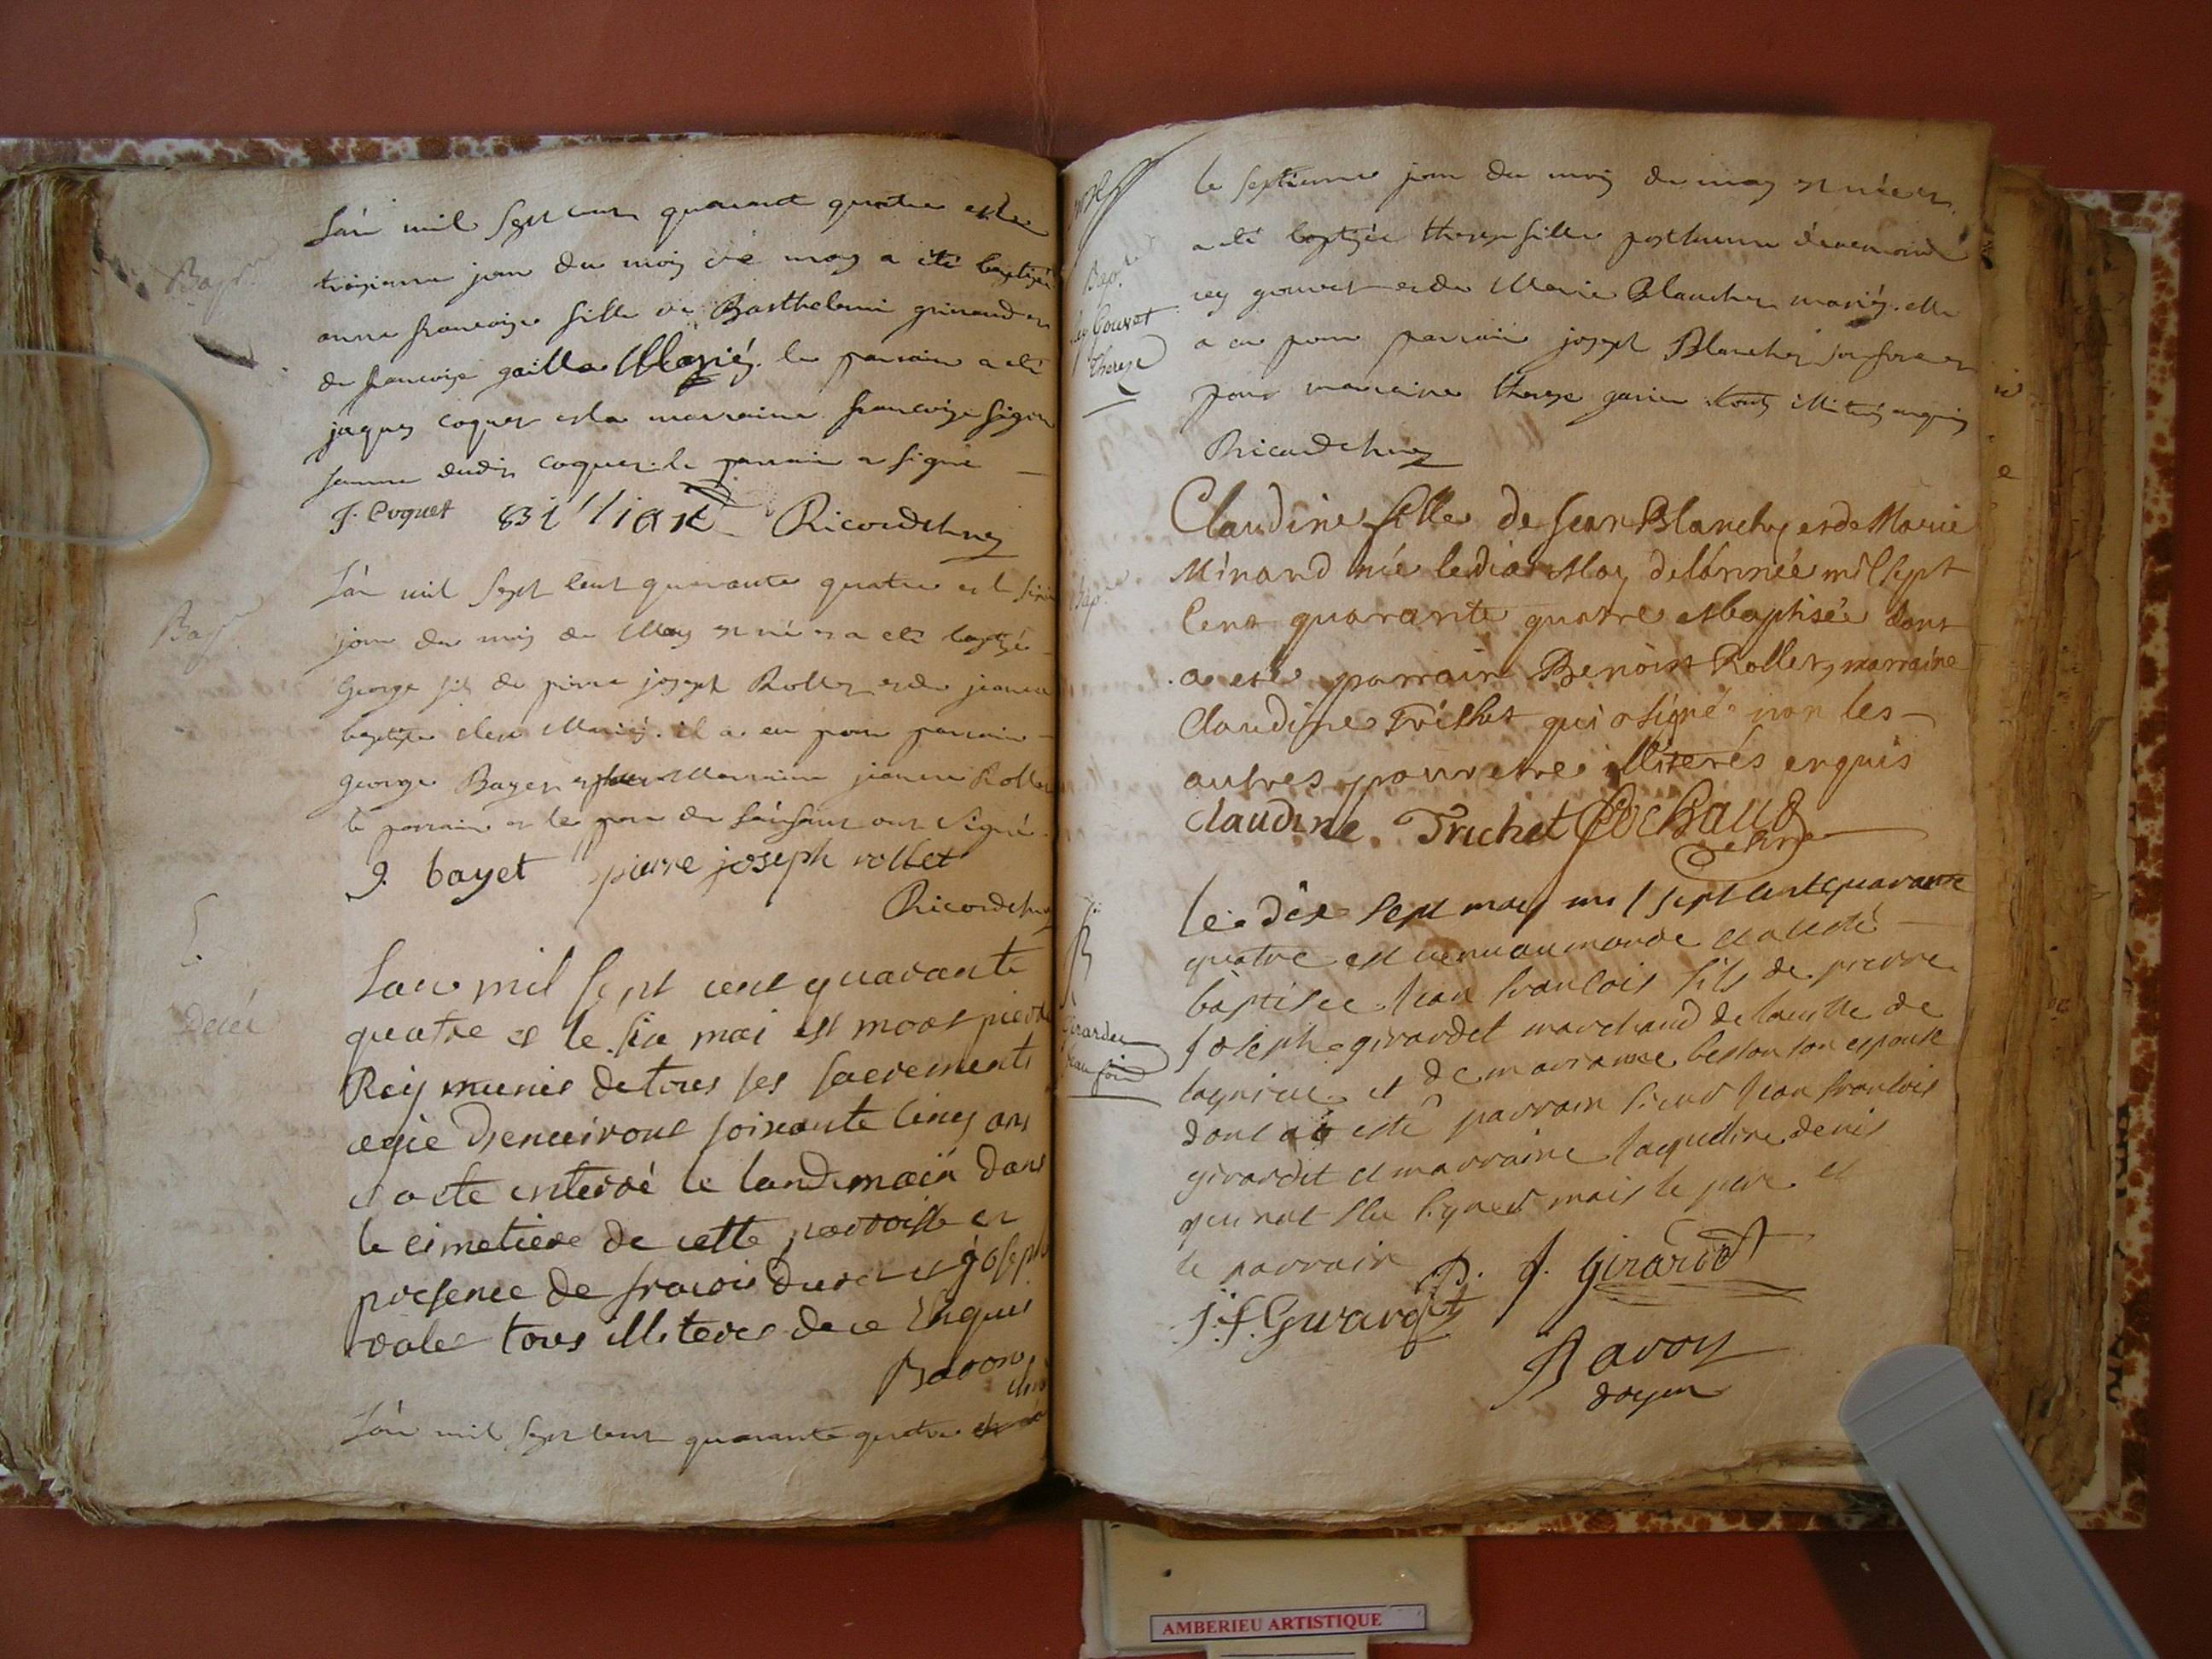 Bapt.
L'an mil sept cent quarante quatre et le
troisieme jour du mois de may a été baptizée
anne françoise fille de Barthelemi grinand et
de françoise gailla Mariés. le parrain a été
jaques coquet et la marraine françoise
femme dudit coquet. le parrain a signé
J. Coquet Billiard Ricord
Bap
L'an mil sept cent quarante quatre et le
jour du mois de May est né et a eté baptizé
George fils de pierre joseph Rollet et de jeanne
baptiste Mariés. il a eu pour parrain
George Bayet et pour Marraine jeanne Rollet
le parrain et le pere de l'enfant ont signé.
g. bayet pierre joseph rollet
Ricord
Decés
Lan mil sept cent quarante
quatre et le six mai est mort pierre
Rey munis de tous ses sacrements
agée denviront soixante cinq ans
et a ete enterré le landemain dans
le cimetiere de cette parroisse en
presence de francois et joseph
tous illiteres de ce Enquis
Baron
L'an mil sept cent quarante quatre et
le septieme jour du mois de may est née et
a eté baptizée therese fille posthume
rey gouvet et de Marie Blanchet mariés. elle
a eu pour parrain joseph Blanchet son frere et
pour marraine therese garin touts illiterés enquis
Ricord
Bap.
Rey Gouvet
Therese
Claudine fille de Jean Blanchet et de Marie
Minand née le dix May de l'année mil sept
Cent quarante quatre et baptisée dont
a eté parrain Benoist Rollet, marraine
Claudine Trichet qui a signé non les
autres pour etre illiterés enquis
Bap
claudine Trichet Cochaud
le dix sept may mil sept cent quarante
quatre est venu au monde et a esté
baptisee Jean francois fils de pierre
Joseph girardet marchand de la ville de
lagnieu et de marianne besson son espouse
dont a esté parrain sieur Jean francois
girardet et marraine Jaqueline denis
qui not sceu signer mais le pere et
le parrain
Girardet
Jean
P. J. Girardet
J. f. Girardet
Ravoy
doyen
AMBERIEU ARTISTIQUE